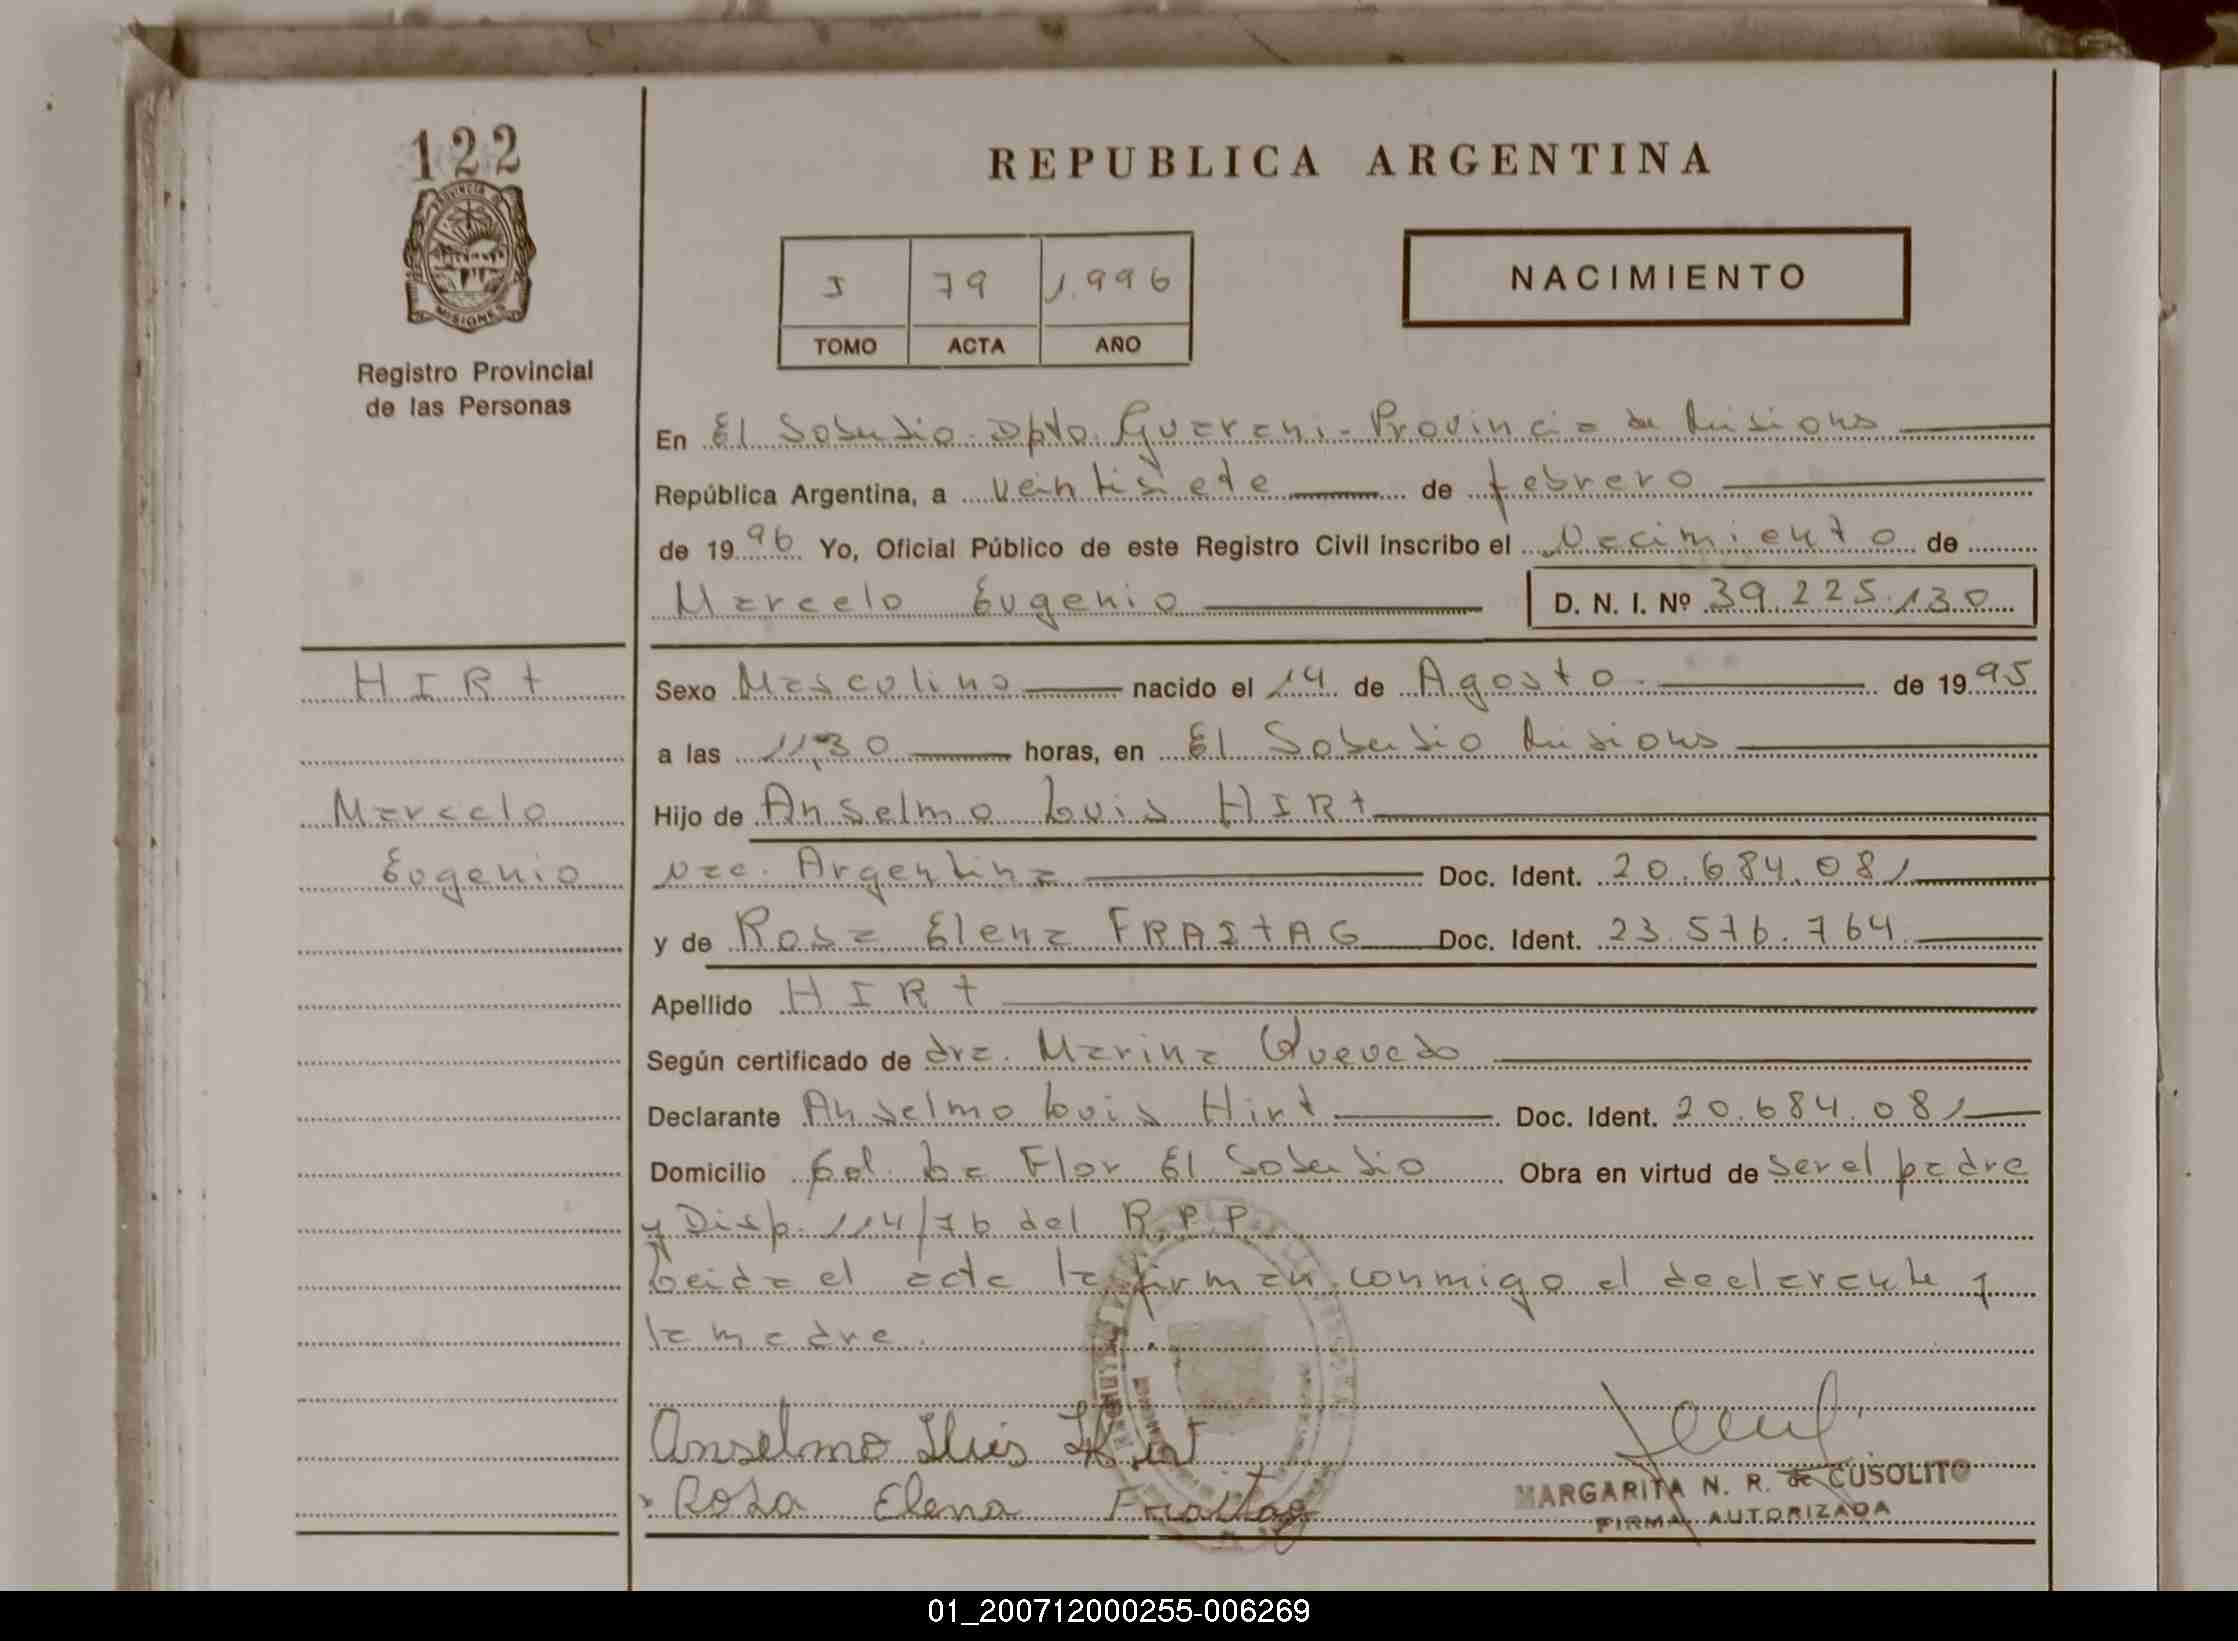 122
PROVINCIA DE
MISIONES
Registro Provincial
de las Personas
REPUBLICA ARGENTINA
I 79 1.996
TOMO ACTA AÑO
NACIMIENTO
En El Soberbio Dpto. Guarani - Provincia de Misiones
República Argentina, a veintisiete de febrero
de 1996 Yo, Oficial Público de este Registro Civil inscribo el Nacimiento de
Marcelo Eugenio D. N. I. Nº 39.225.130
HIRt
Sexo Masculino nacido el 14 de Agosto de 1995
a las 11,30 horas, en El Soberbio Misiones
Marcelo
Hijo de Anselmo Luis HIRt
Eugenio
nac. Argentina Doc. Ident. 20.684.081
y de Rosa Elena FRAItAG Doc. Ident. 23.576.764
Apellido HIRt
Según certificado de dra. Marina Quevedo
Declarante Anselmo Luis Hirt Doc. Ident. 20.684.081
Domicilio Col. La Flor El Soberbio Obra en virtud de ser el padre
y Disp. 114/76 del R.P.P.
Leida el acta la firman conmigo el declarante y
la madre.
Anselmo Luis Hirt
Rosa Elena Fraitag
MARGARITA N. R. de CUSOLITO
FIRMA AUTORIZADA
01_200712000255-006269